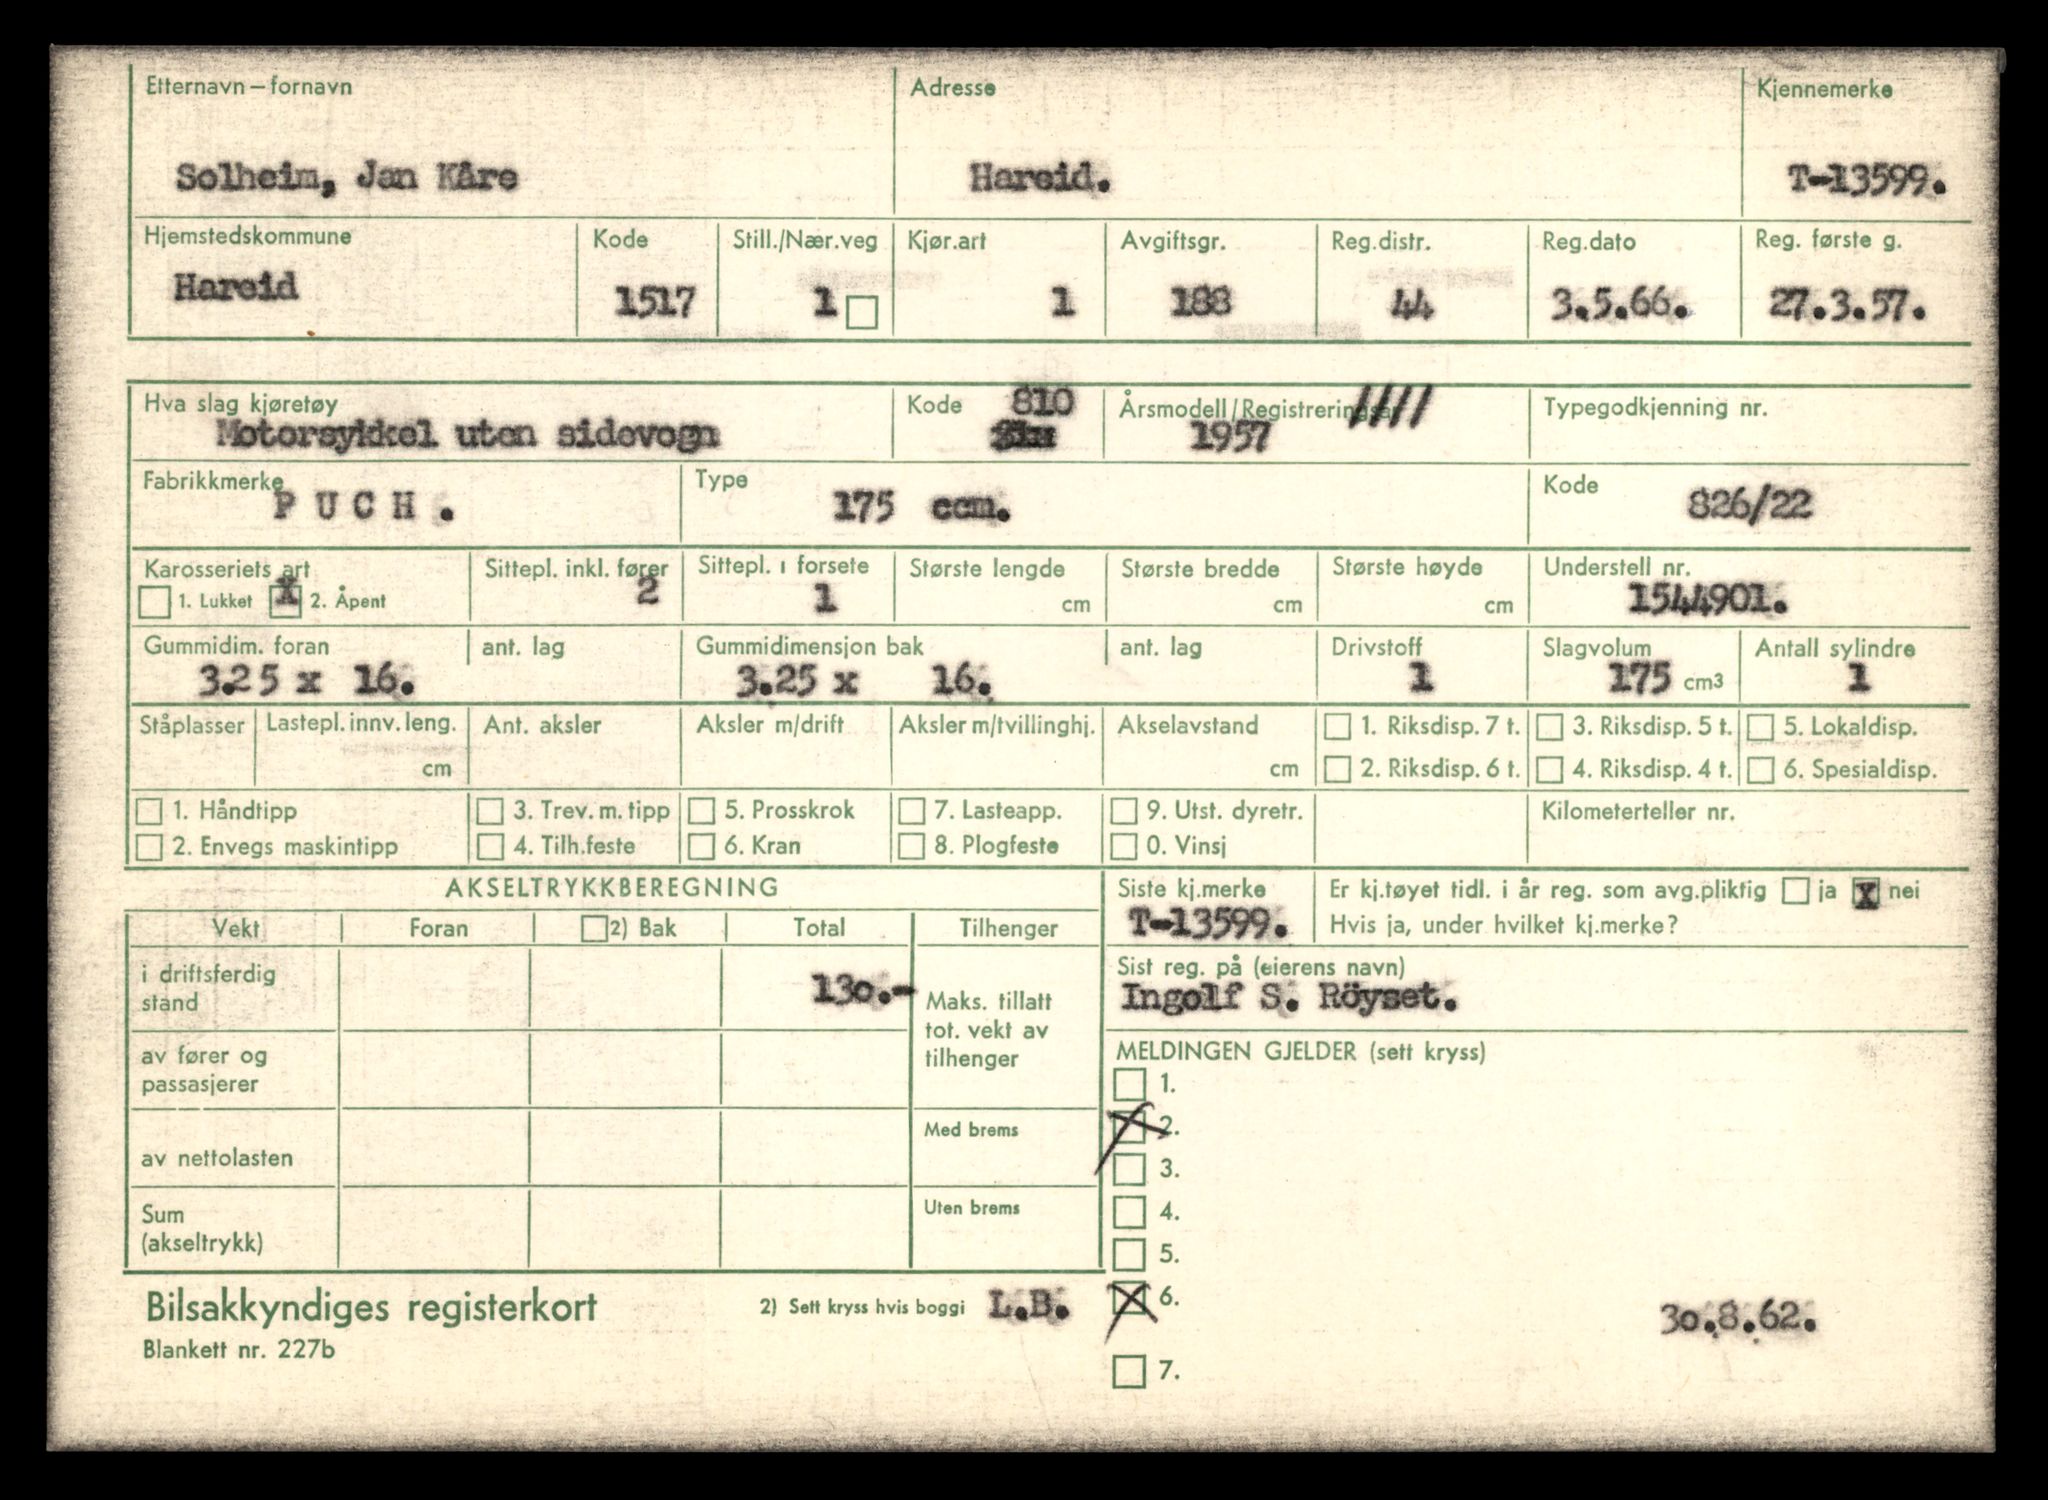 Etternavn – fornavn Adresse Kjennemerke
Solheim, Jan Kåre Hareid. T-13599.
Hjemstedskommune Kode Still./Nær.veg Kjør.art Avgiftsgr. Reg.distr. Reg.dato Reg. første g.
Hareid 1517 1 1 188 44 3.5.66. 27.3.57.
Hva slag kjøretøy Kode 810 Årsmodell/Registreringsår //// Typegodkjenning nr.
Motorsykkel uten sidevogn 1957
Fabrikkmerke Type Kode
PUCH. 175 ccm. 826/22
Karosseriets art Sittepl. inkl. fører Sittepl. i forsete Største lengde Største bredde Største høyde Understell nr.
1. Lukket X 2. Åpent 2 1 cm cm cm 1544901.
Gummidim. foran ant. lag Gummidimensjon bak ant. lag Drivstoff Slagvolum Antall sylindre
3.25 x 16. 3.25 x 16. 1 175 cm3 1
Ståplasser Lastepl. innv. leng. Ant. aksler Aksler m/drift Aksler m/tvillinghj. Akselavstand 1. Riksdisp. 7 t. 3. Riksdisp. 5 t. 5. Lokaldisp.
cm cm 2. Riksdisp. 6 t. 4. Riksdisp. 4 t. 6. Spesialdisp.
1. Håndtipp 3. Trev. m. tipp 5. Prosskrok 7. Lasteapp. 9. Utst. dyretr. Kilometerteller nr.
2. Envegs maskintipp 4. Tilh.feste 6. Kran 8. Plogfeste 0. Vinsj
AKSELTRYKKBEREGNING Siste kj.merke Er kj.tøyet tidl. i år reg. som avg.pliktig ja X nei
Vekt Foran 2) Bak Total Tilhenger T-13599. Hvis ja, under hvilket kj.merke?
i driftsferdig stand 130.- Sist reg. på (eierens navn)
Ingolf S. Röyset.
Maks. tillatt
tot. vekt av
tilhenger
av fører og
passasjerer
MELDINGEN GJELDER (sett kryss)
1.
Med brems X 2.
av nettolasten 3.
Sum Uten brems 4.
(akseltrykk) 5.
Bilsakkyndiges registerkort 2) Sett kryss hvis boggi L.B. X 6. 30.8.62.
Blankett nr. 227b 7.